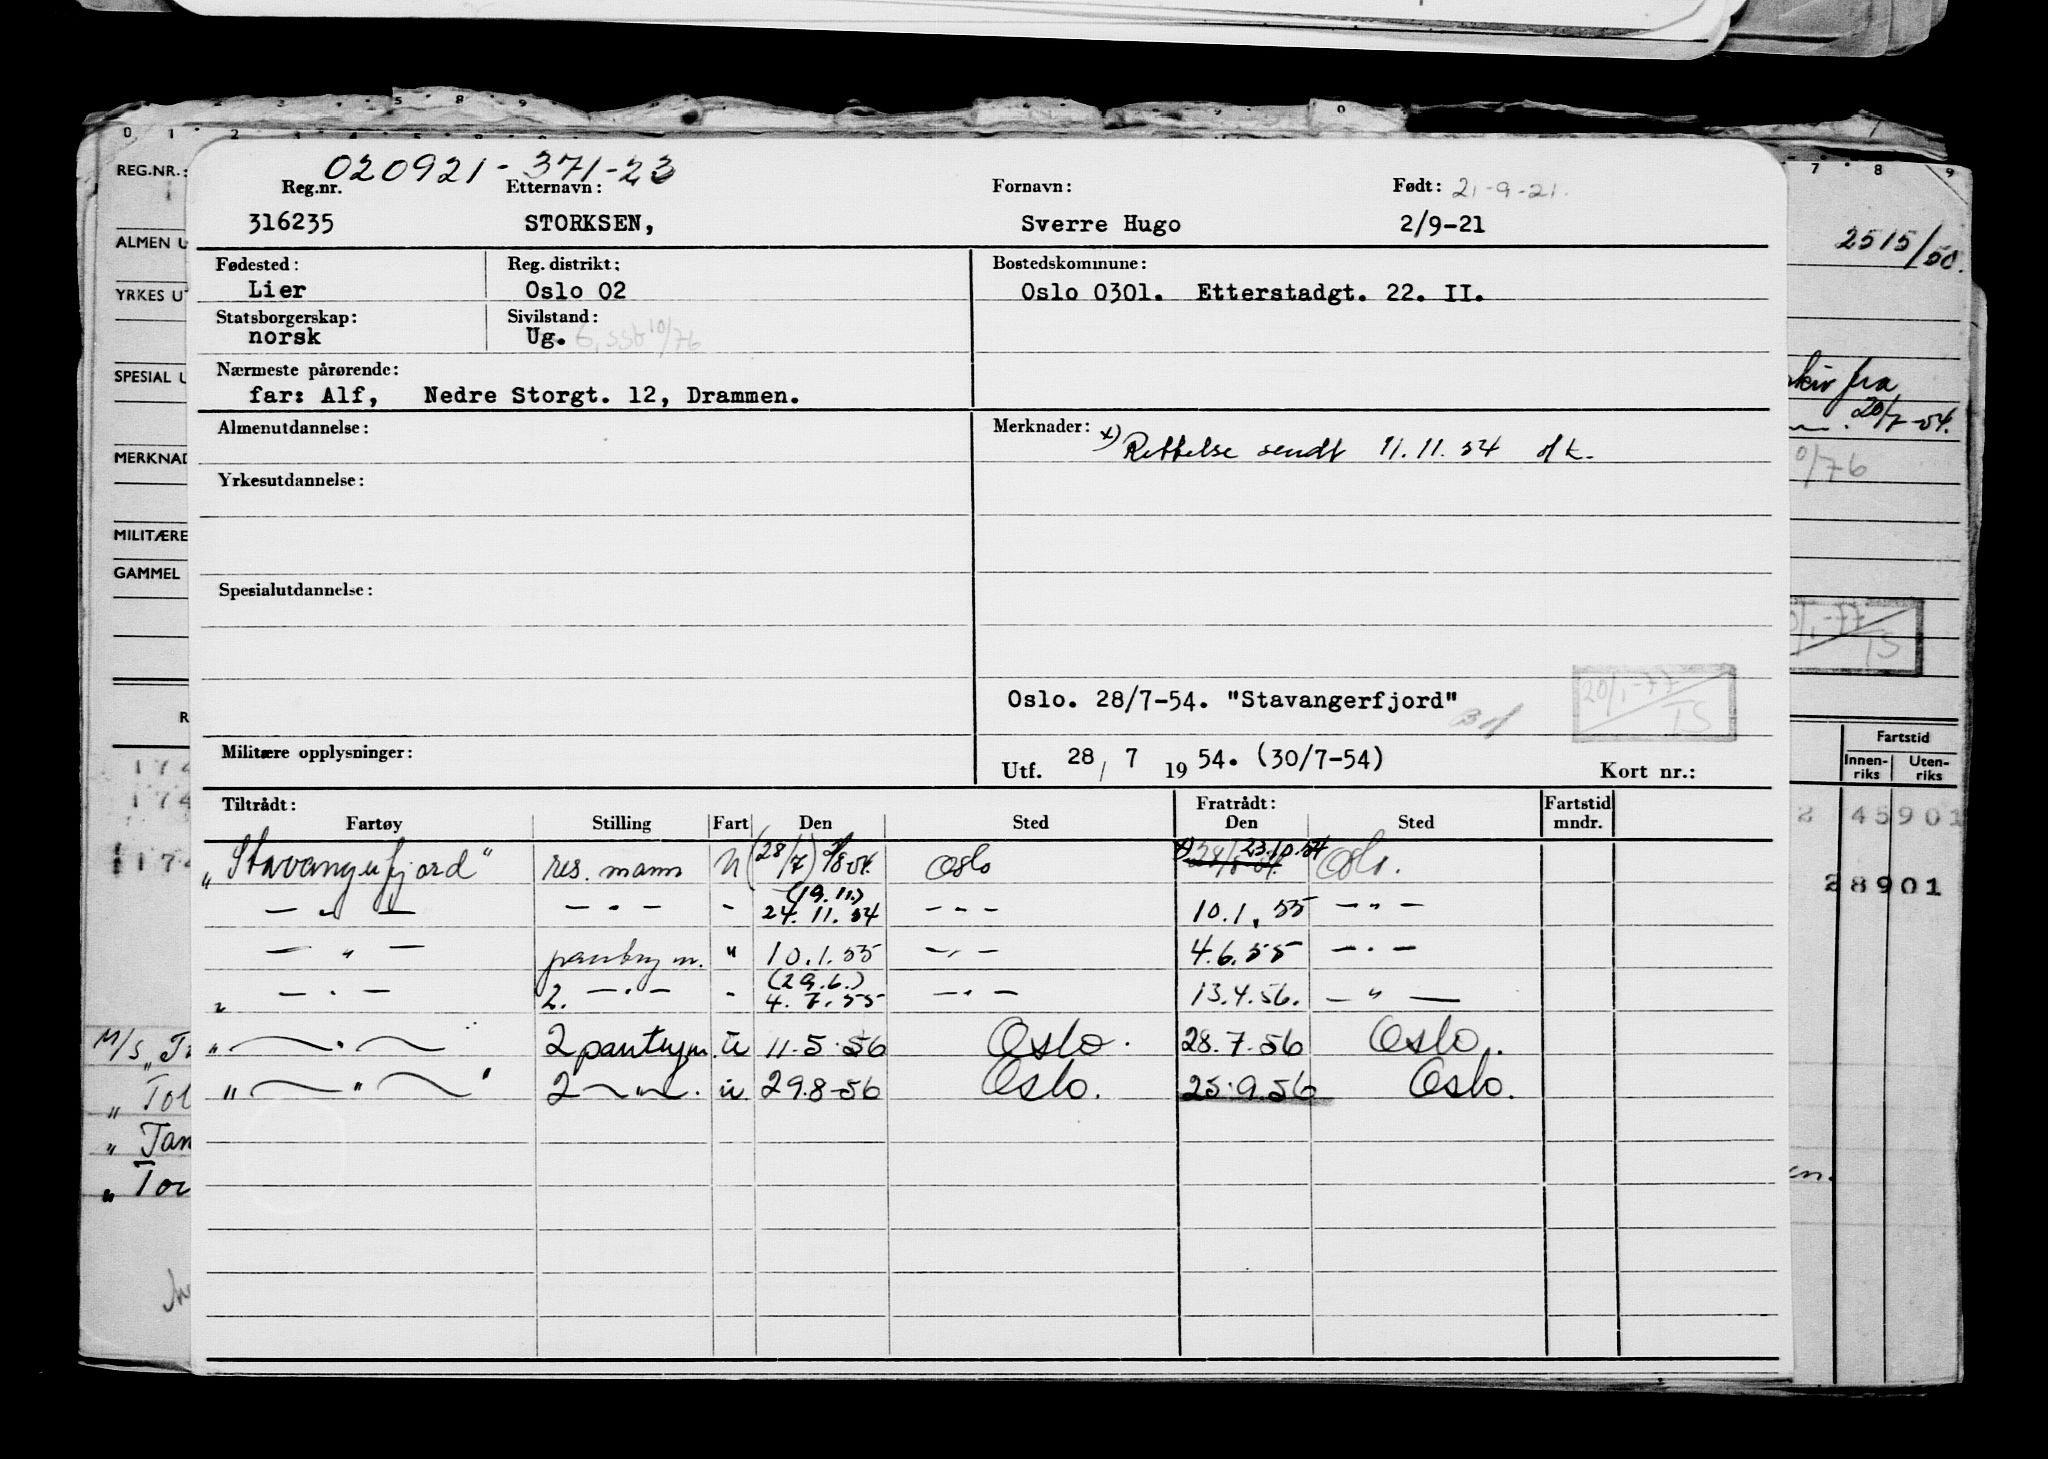 0 1 2 3 4 5 8 9 0 7 8 9
REG.NR.:
ALMEN U
YRKES UT
SPECIAL U
MERKNAD
MILITÆRE
GAMMEL
2515/50.
skiv fra
20/7-54.
0/76
020921-371-23
Reg.nr. Etternavn: Fornavn: Født: 21-9-21.
316235 STORKSEN, Sverre Hugo 2/9-21
Fødested: Reg. distrikt: Bostedskommune:
Lier Oslo 02 Oslo 0301. Etterstadgt. 22. II.
Statsborgerskap: Sivilstand:
norsk Ug. G, ssb 10/76
Nærmeste pårørende:
far: Alf, Nedre Storgt. 12, Drammen.
Almenutdannelse: Merknader: x) Rettelse sendt 11.11.54
Yrkesutdannelse:
Spesialutdannelse:
Oslo. 28/7-54. "Stavangerfjord" 20/1-77 TS
Militære opplysninger: Utf. 28/7 1954. (30/7-54) Kort nr.:
Tiltrådt: Fratrådt: Fartstid
Fartøy Stilling Fart Den Sted Den Sted mndr.
"Stavangerfjord" res. mann U (28/7) 2/8-54. Oslo x) 23.10.54 Oslo.
— " — — " — - (19.11.) 24.11.54 — " — 10.1.55 — " —
— " — pantry m. " 10.1.55 — " — 4.6.55 — " —
" — " — 2. — " — - (29.6.) 4.7.55 — " — 13.4.56. — " —
" — " — 2 pantrym. U 11.5.56 Oslo. 28.7.56 Oslo.
" — " — " 2 — " — . U. 29.8-56 Oslo. 25.9.56 Oslo.
Fartstid
Innen-riks Uten-riks
2 45901
28901
174
174
174
M/S "Tr
" Tol
" Tan
" Tor